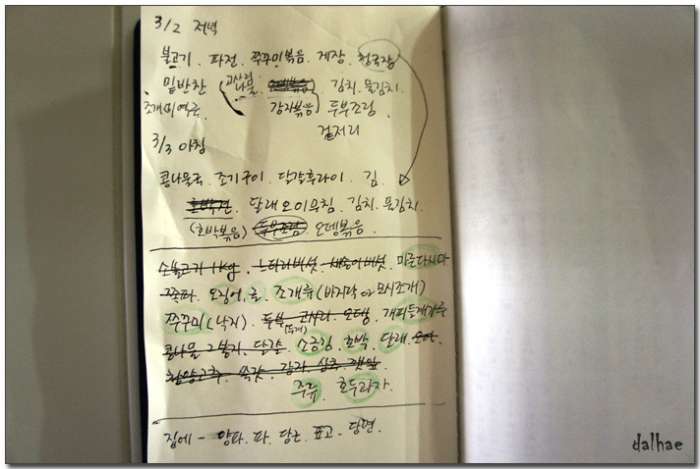 3/2 저녁
불고기. 파전. 쭈꾸미볶음. 게장. 청국장
밑반찬 (고사리 나물. 김치. 물김치.
조개미역국 감자볶음) 두부조림.
겉저리
3/3 아침
콩나물국. 조기구이. 달걀후라이. 김.
호박전. 달래오이무침. 김치. 물김치.
(호박볶음) 두부조림 오뎅볶음.
소불고기 1kg. 느타리버섯. 새송이버섯. 미군다시다
쪽파. 오징어. 굴. 조개류(바지락 or 모시조개)
쭈꾸미(낙지). 두부. 고사리. 오뎅. 들깨가루
(두개)
콩나물 2봉지. 소금. 호박. 달래. 오이.
쑥갓. 감자. 상추. 깻잎
주류. 호두과자.
집에 - 양파. 파. 당근. 표고. 당면.
dalhae